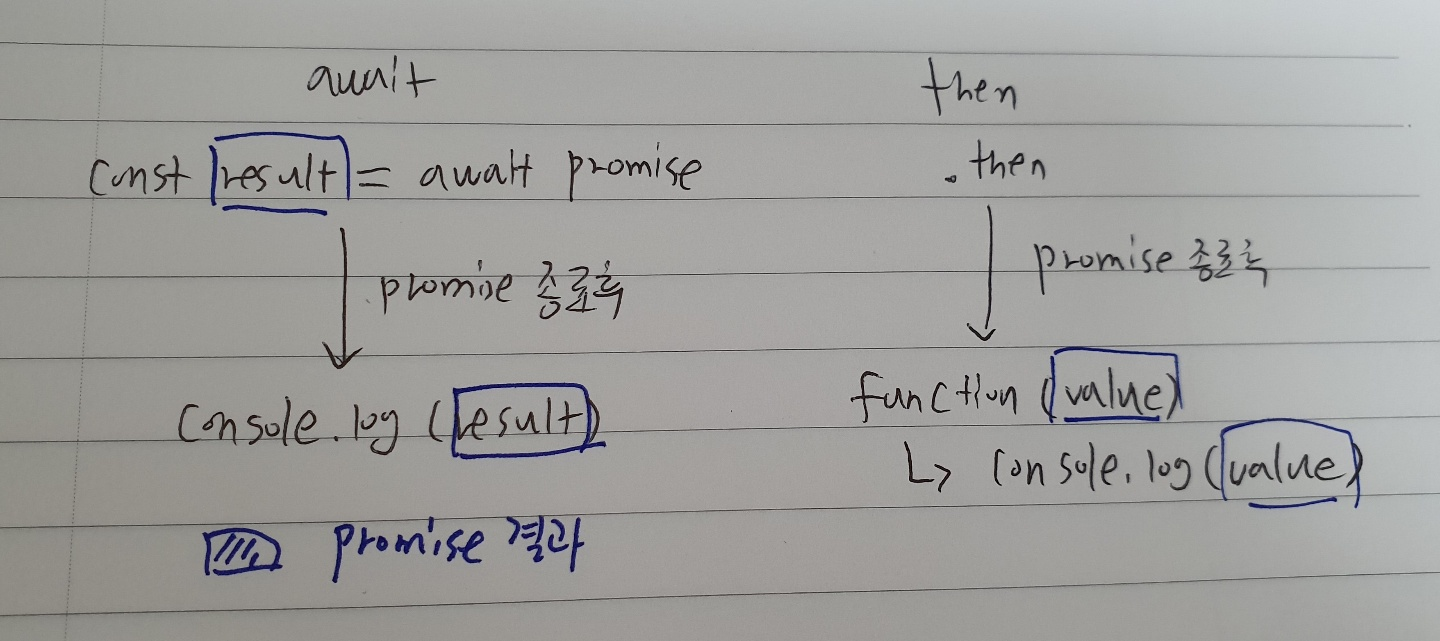 await
const result = await promise
promise 종료후
console.log (result)
promise 결과
then
.then
promise 종료후
function (value)
↳ console.log (value)